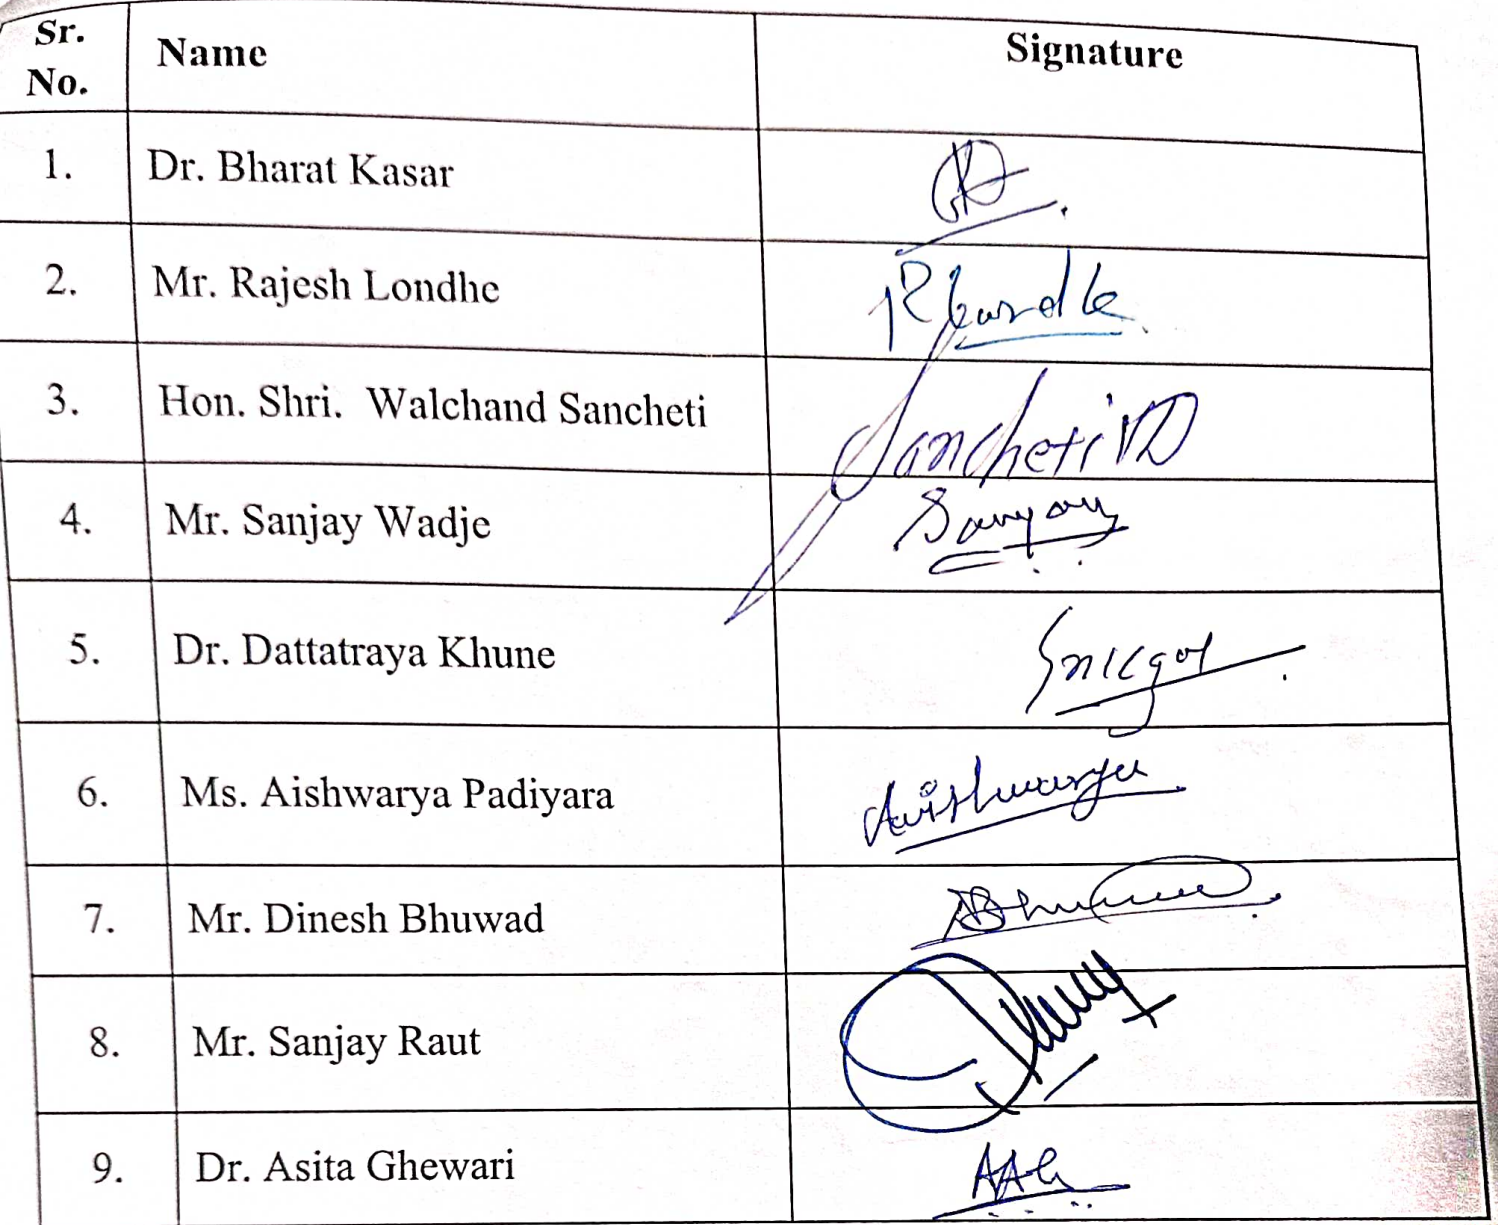 Sr. No. Name Signature
1. Dr. Bharat Kasar
2. Mr. Rajesh Londhe
3. Hon. Shri.  Walchand Sancheti Sancheti
4. Mr. Sanjay Wadje Sanjay
5. Dr. Dattatraya Khune
6. Ms. Aishwarya Padiyara Aishwarya
7. Mr. Dinesh Bhuwad
8. Mr. Sanjay Raut
9. Dr. Asita Ghewari